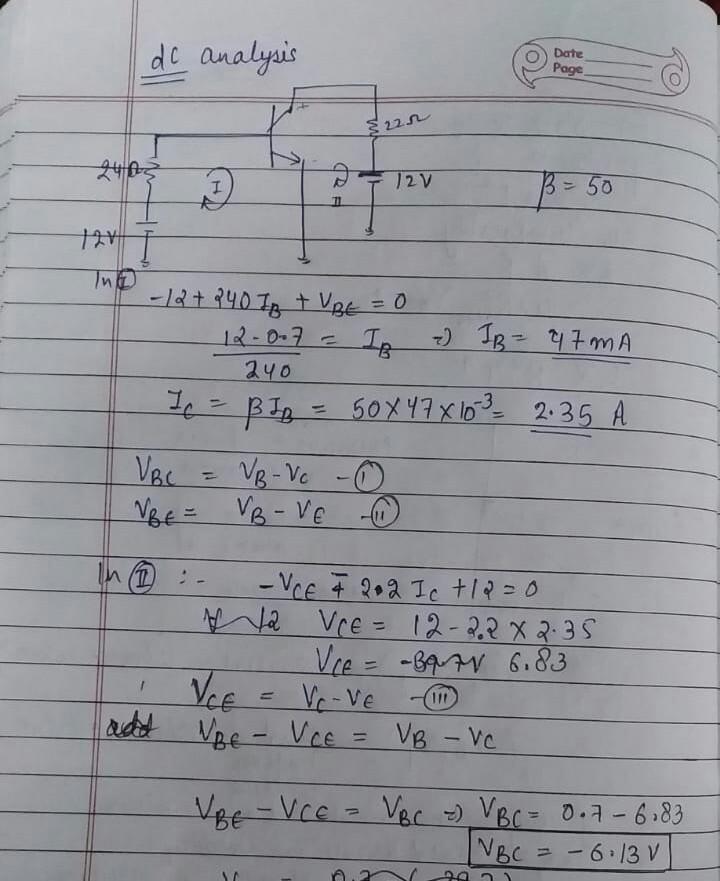 dc analysis
Date
Page
22Ω
24Ω
I
II
12V
β = 50
12V
In I
-12 + 240 I_B + V_BE = 0
12-0.7 / 240 = I_B => I_B = 47mA
I_C = βI_B = 50 X 47 X 10^-3 = 2.35 A
V_BC = V_B - V_C - (I)
V_BE = V_B - V_E - (II)
In (II) :- -V_CE - 2.2 I_C + 12 = 0
12 V_CE = 12 - 2.2 X 2.35
V_CE = 6.83
V_CE = V_C - V_E - (III)
add V_BE - V_CE = V_B - V_C
V_BE - V_CE = V_BC => V_BC = 0.7 - 6.83
V_BC = -6.13 V